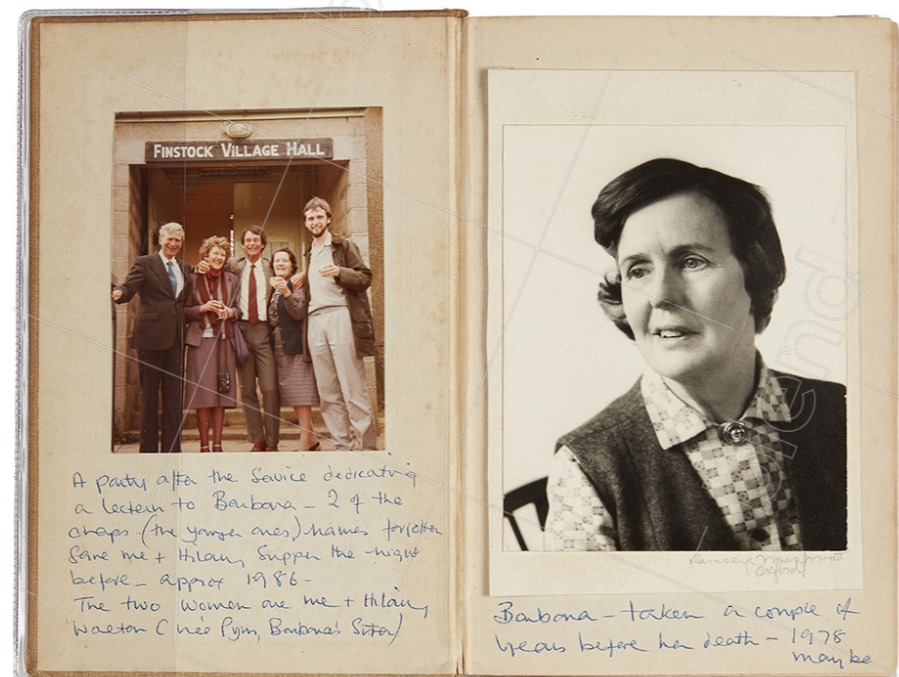 FINSTOCK VILLAGE HALL
A party after the Service dedicating
a lectern to Barbara - 2 of the
chaps - (the younger ones) names forgotten
gave me + Hilary Supper the night
before - approx 1986 -
The two women are me + Hilary
Walton (née Pym, Barbara's Sister)
Oxford
Barbara - taken a couple of
years before her death - 1978
maybe